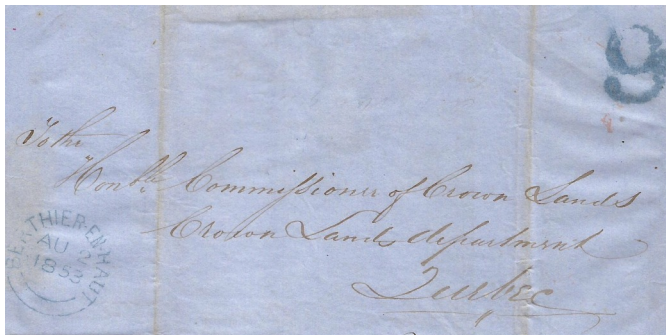 9
To the
Honble Commissioner of Crown Lands
Crown Lands department
Quebec
BERTHIER-EN-HAUT
AU
1853